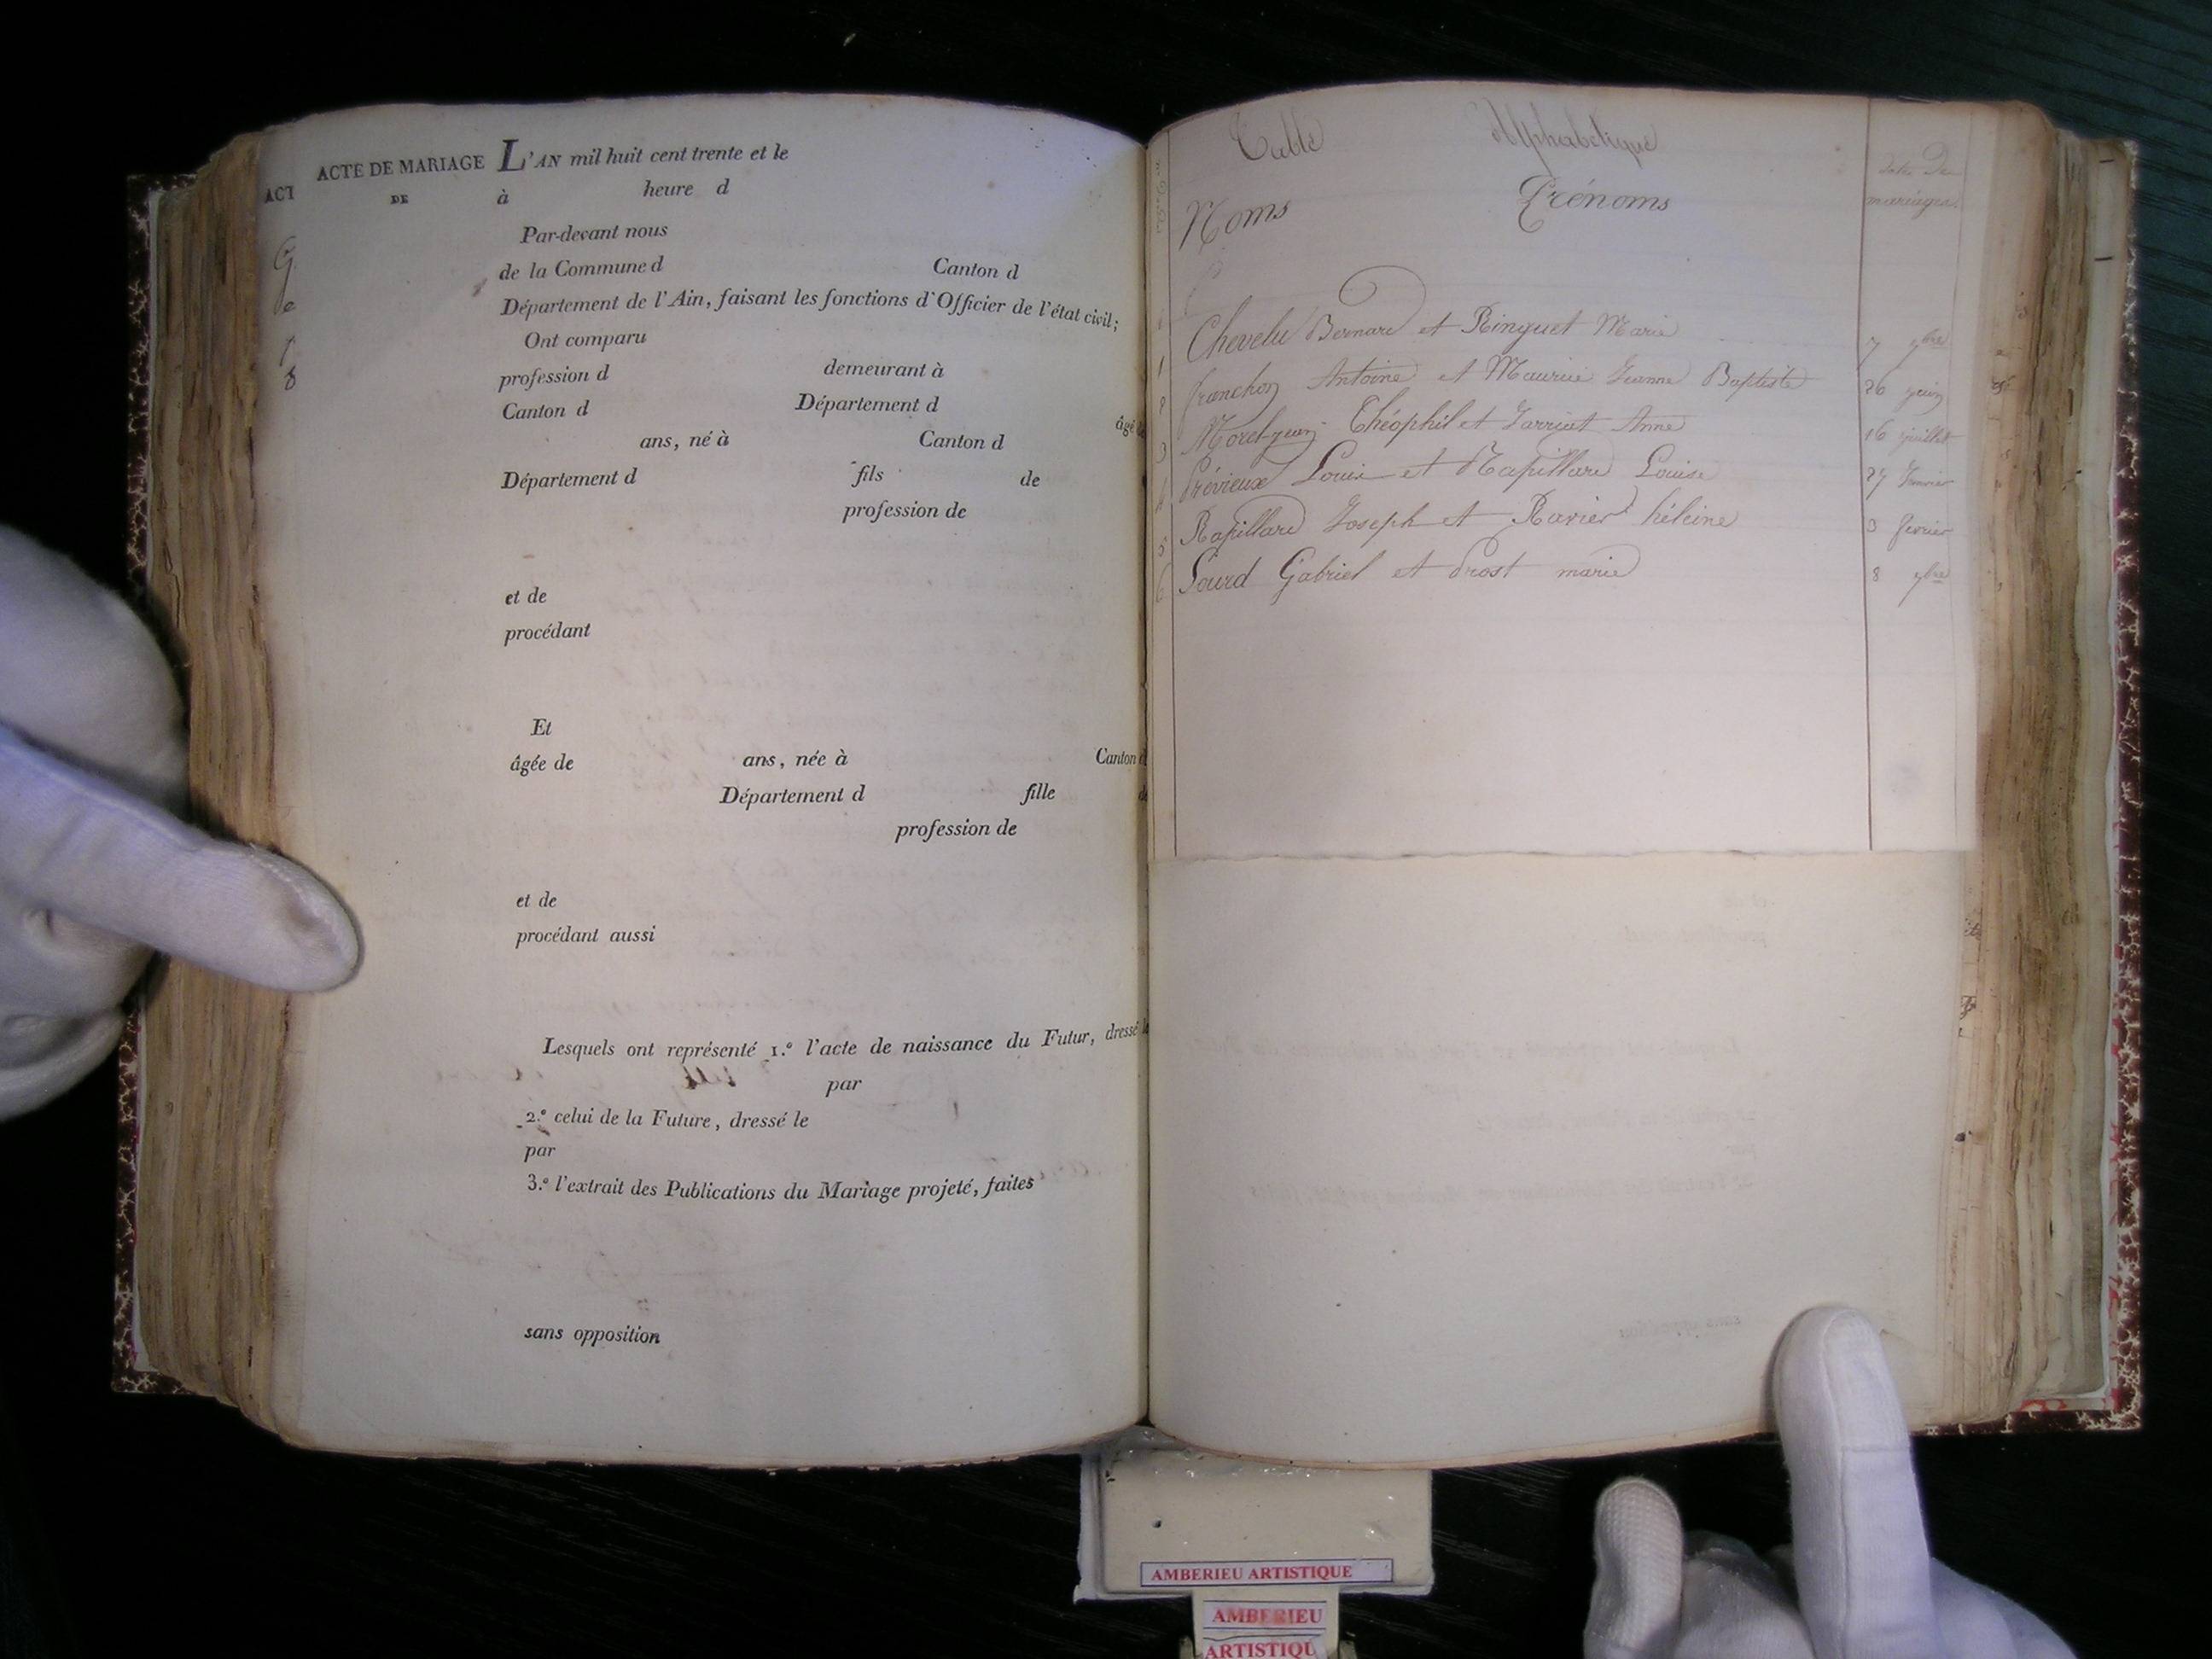 ACTE DE MARIAGE L'AN mil huit cent trente et le
ACT
DE à heure d
Par-devant nous
de la Commune d Canton d
Département de l'Ain, faisant les fonctions d'Officier de l'état civil;
Ont comparu
profession d demeurant à
Canton d Département d âgé
ans, né à Canton d
Département d fils de
profession de
et de
procédant
Et
âgée de ans, née à Canton d
Département d fille de
profession de
et de
procédant aussi
Lesquels ont représenté 1.º l'acte de naissance du Futur, dressé le
par
2.º celui de la Future, dressé le
par
3.º l'extrait des Publications du Mariage projeté, faites
sans opposition
Table Alphabetique
Noms Prénoms dates De mariages
Chevelu Bernard et Ringuet Marie 7 9bre
1 franchon Antoine et Maurice Jeanne Baptiste 26 juin
2 Morel-jean Théophil et Jarriat Anne 16 juillet
3 Prévieux Louis et Rapillard Louise 27 Janvier
Rapillard Joseph et Ravier héleine 3 fevrier
5
6 Sourd Gabriel et Prost marie 8 9bre
AMBERIEU ARTISTIQUE
AMBERIEU
ARTISTIQU